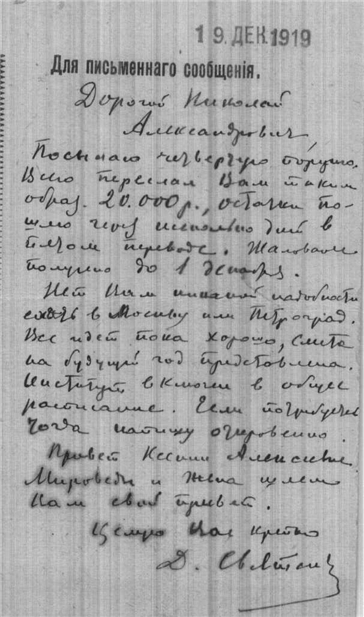 19 ДЕК 1919
Для письменнаго сообщенія.
Дорогой Николай
Александрович,
Посылаю четвертую порцию.
Всего переслал Вам таким
образ. 20.000 р., остатки по-
шлю через несколько дней в
пятом переводе. Жалование
получено до 1 декабря.
Нет Вам никакой надобности
ехать в Москву или Петроград.
Все идет пока хорошо, смета
на будущий год представлена.
Институт включен в общее
расписание. Если потребуется
тогда напишу откровенно.
Привет Ксении Алексеевне.
Мироведы и Жена шлем
Вам свой привет.
Целую Вас крепко
Д. Святский